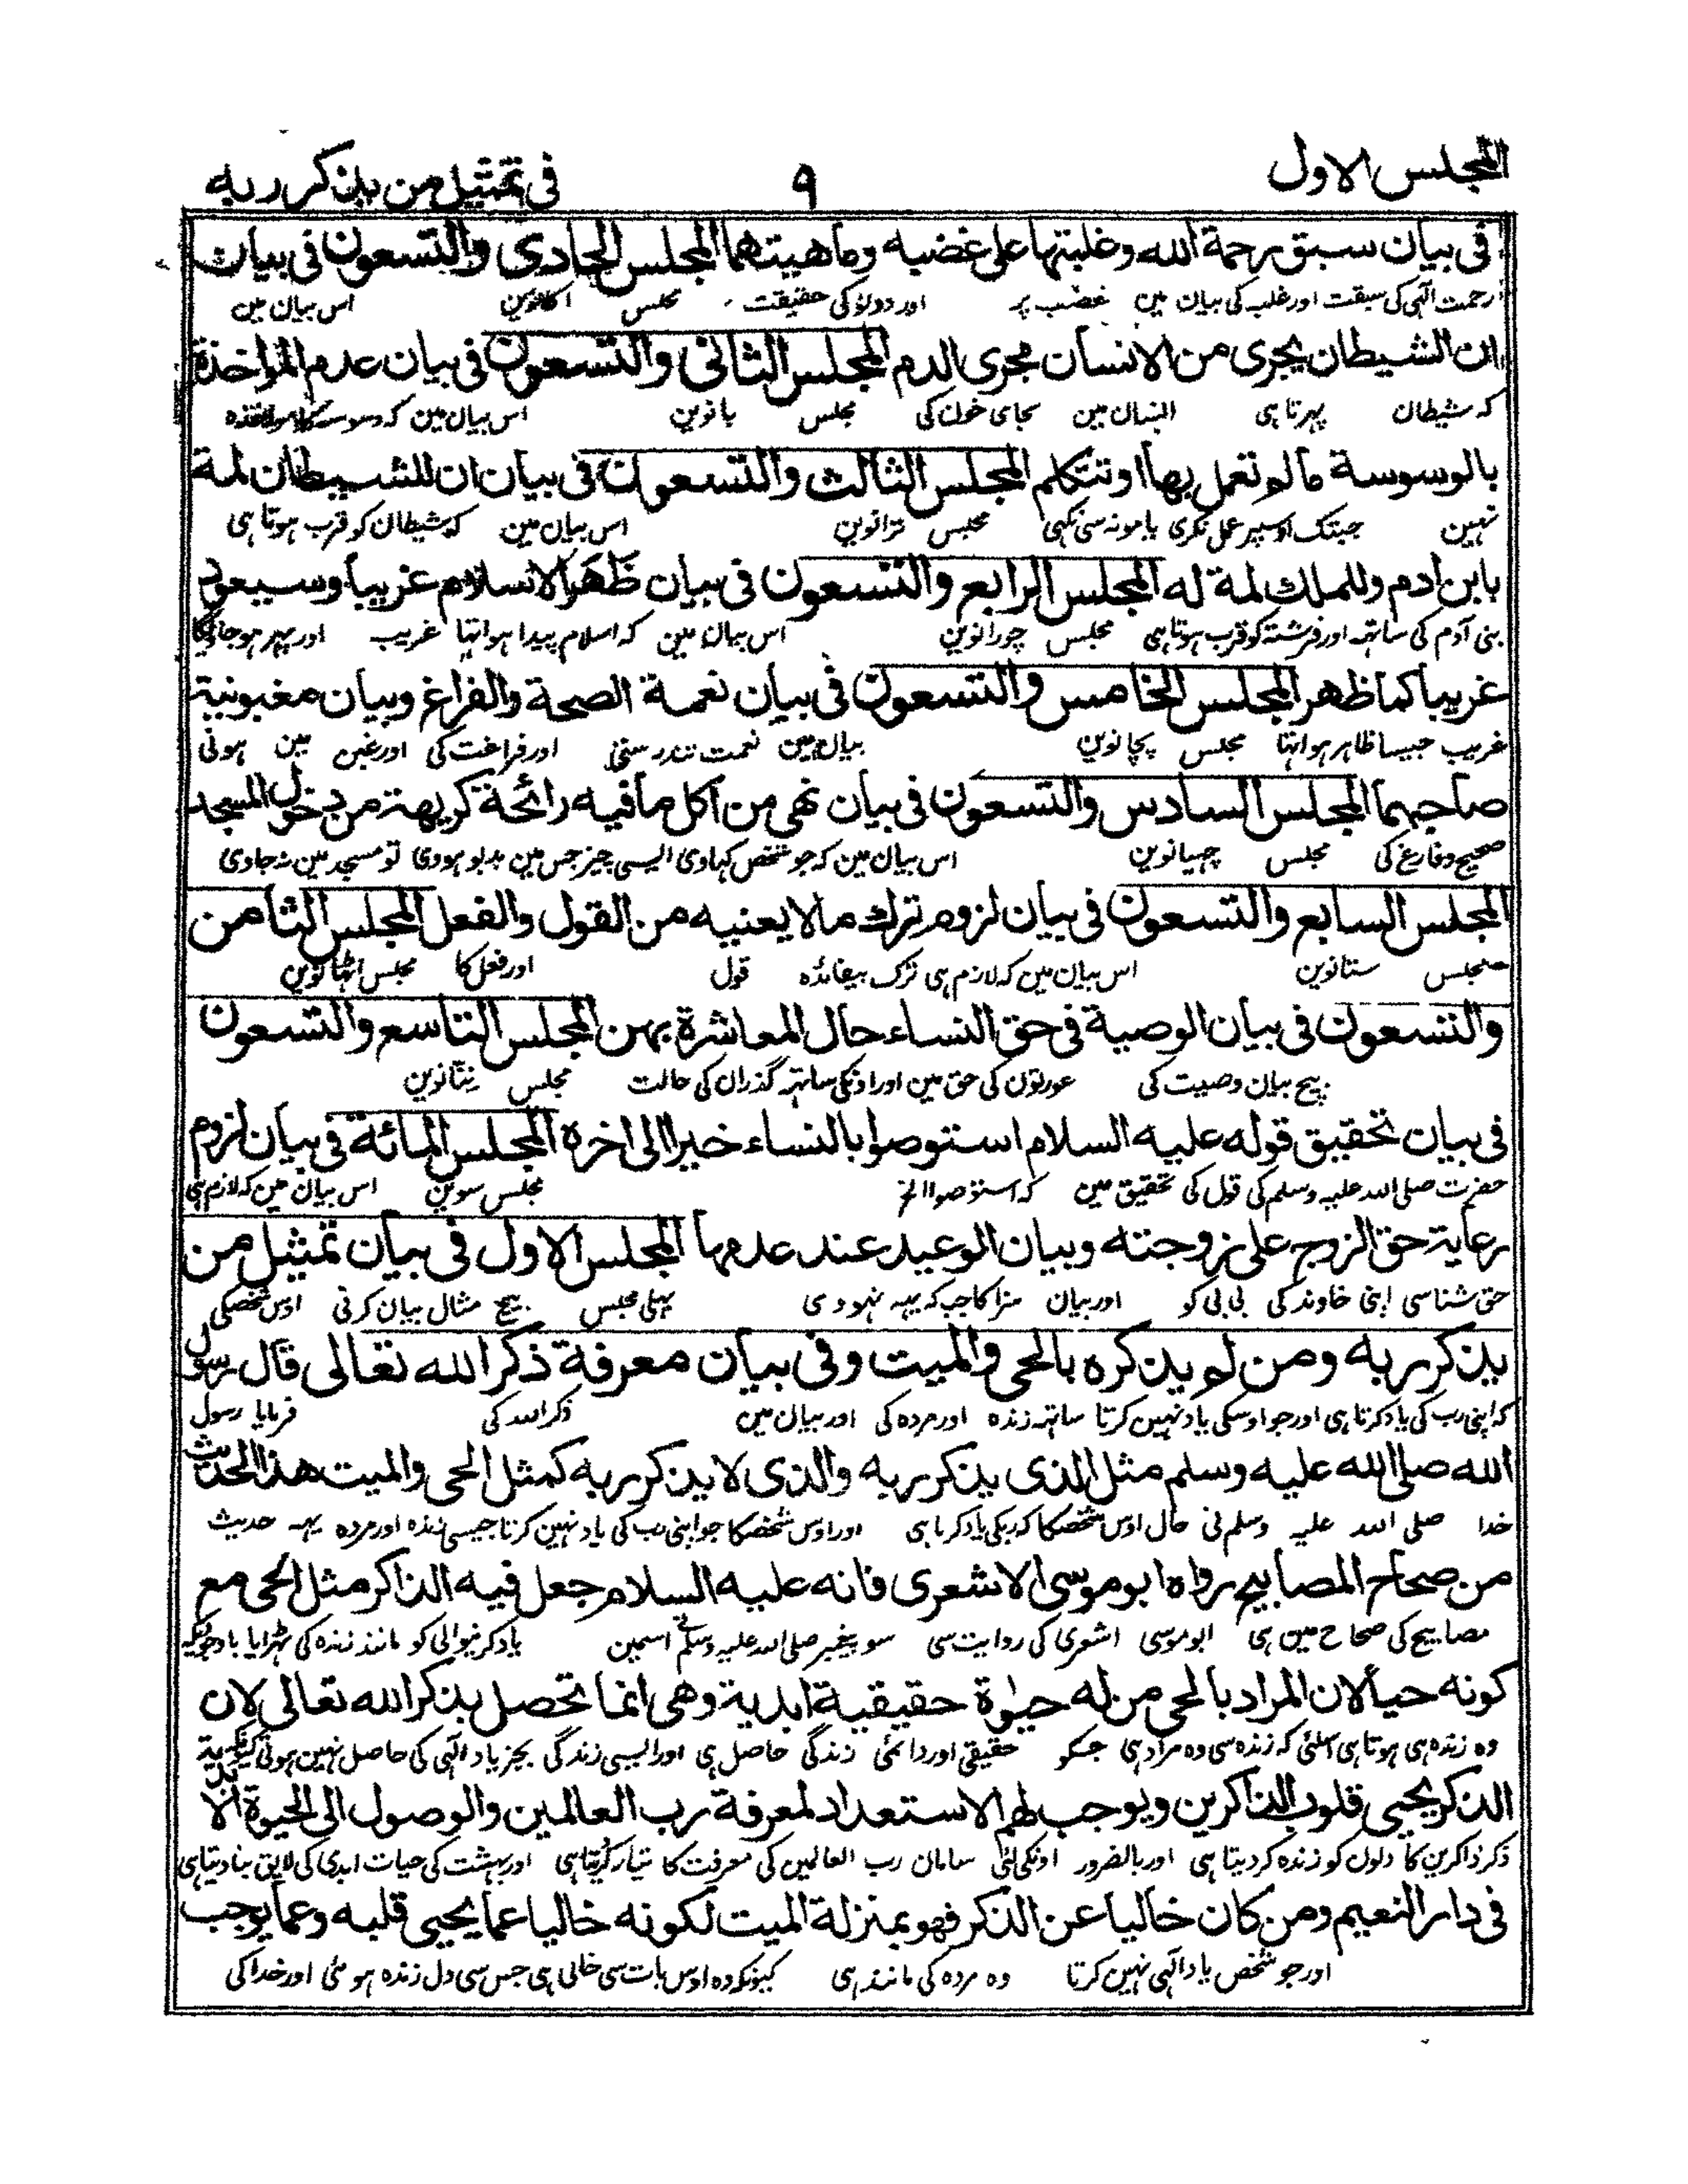 المجلس الاول
٩
فی تمثیل من یذکر ربه
فی بیان سبق رحمة الله وغلبتها علی غضبه وماهیتهما المجلس الحادی والتسعون فی بیان
رحمت الہی کی سبقت اور غلبہ کی بیان مین غضب پر اور دونو کی حقیقت مجلس اکانوین اس بیان مین
ان الشیطان یجری من الانسان مجری الدم المجلس الثانی والتسعون فی بیان عدم المؤاخذة
کہ شیطان پہرتا ہی انسان مین بجای خون کی مجلس بانوین اس بیان مین کہ وسوسہ کا
بالوسوسة مالم تعمل بها او تتکلم المجلس الثالث والتسعون فی بیان ان للشیطان لمة
نہین جبتک اوسپر عمل نکری یا مونہہ سی نکہی مجلس ترانوین اس بیان مین کہ شیطان کو قرب ہوتا ہی
بابن ادم وللملك لمة له المجلس الرابع والتسعون فی بیان ظَهَر الاسلام غریبا وسیعود
بنی آدم کی ساتہہ اور فرشتہ کو قرب ہوتا ہی مجلس چورانوین اس بیان مین کہ اسلام پیدا ہوا تہا غریب اور پہر ہو جائیگا
غریبا کما ظهر المجلس الخامس والتسعون فی بیان نعمة الصحة والفراغ وبیان مغبونیة
غریب جیسا ظاہر ہوا تہا مجلس پچانوین بیان مین نعمت تندرستی اور فراغت کی اور غبن مین ہونی
صاحبهما المجلس السادس والتسعون فی بیان نهی من اکل مافیه رائحة کریهة من دخول المسجد
صحیح وفارغ کی مجلس چہیانوین اس بیان مین کہ جو شخص کہاوی ایسی چیز جس مین بدبو ہووی تو مسجد مین نہ جاوی
المجلس السابع والتسعون فی بیان لزوم ترك مالا یعنیه من القول والفعل المجلس الثامن
مجلس ستانوین اس بیان مین کہ لازم ہی ترک بیفائدہ قول اور فعل کا مجلس اٹہانوین
والتسعون فی بیان الوصیة فی حق النساء حال المعاشرة بهن المجلس التاسع والتسعون
بیچ بیان وصیت کی عورتون کی حق مین اور اونکی ساتہہ گذران کی حالت مجلس ننانوین
فی بیان تحقیق قوله علیه السلام استوصوا بالنساء خیرا الی اخره المجلس المائة فی بیان لزوم
حضرت صلی اللہ علیہ وسلم کی قول کی تحقیق مین کہ استوصوا الخ مجلس سوین اس بیان مین کہ لازم ہی
رعایة حق الزوج علی زوجته وبیان الوعید عند عدمها المجلس الاول فی بیان تمثیل من
حق شناسی اپنی خاوند کی بی بی کو اور بیان سزا کا جب کہ یہہ نہووی پہلی مجلس بیچ مثال بیان کرنی اوس شخص کی
یذکر ربه ومن لم یذکره بالحی والمیت وفی بیان معرفة ذکر الله تعالی قال رسول
کہ اپنی رب کی یاد کرتا ہی اور جو اوسکی یاد نہین کرتا ساتہہ زندہ اور مردہ کی اور بیان مین ذکر اللہ کی فرمایا رسول
الله صلی الله علیه وسلم مثل الذی یذکر ربه والذی لا یذکر ربه کمثل الحی والمیت هذا الحدیث
خدا صلی اللہ علیہ وسلم نی حال اوس شخص کا کہ رب کی یاد کرتا ہی اور اوس شخص کا جو اپنی رب کی یاد نہین کرتا جیسی زندہ اور مردہ یہہ حدیث
من صحاح المصابیح رواه ابو موسی الاشعری فانه علیه السلام جعل فیه الذاکر مثل الحی مع
مصابیح کی صحاح مین ہی ابو موسی اشعری کی روایت سی سو پیغمبر صلی اللہ علیہ وسلم نی اسمین یاد کرنیوالی کو مانند زندہ کی ٹہرایا باوجودیکہ
کونه حیا لان المراد بالحی من له حیٰوة حقیقیة ابدیة وهی انما تحصل بذکر الله تعالی لان
وہ زندہ ہی ہوتا ہی اسلئی کہ زندہ سی وہ مراد ہی جسکو حقیقی اور دائمی زندگی حاصل ہی اور ایسی زندگی بجز یاد الہی کی حاصل نہین ہوتی کیونکہ
الذکر یحیی قلوب الذاکرین ویوجب لهم الاستعداد لمعرفة رب العالمین والوصول الی الحیوة الابدیة
ذکر ذاکرین کا دلون کو زندہ کر دیتا ہی اور بالضرور اونکی لئی سامان رب العالمین کی معرفت کا تیار کر دیتا ہی اور بہشت کی حیات ابدی کی لایق بنا دیتا ہی
فی دار النعیم ومن کان خالیا عن الذکر فهو بمنزلة المیت لکونه خالیا عما یحیی قلبه وعما یوجب
اور جو شخص یاد الہی نہین کرتا وہ مردہ کی مانند ہی کیونکہ وہ اوس بات سی خالی ہی جس سی دل زندہ ہو اور خدا کی